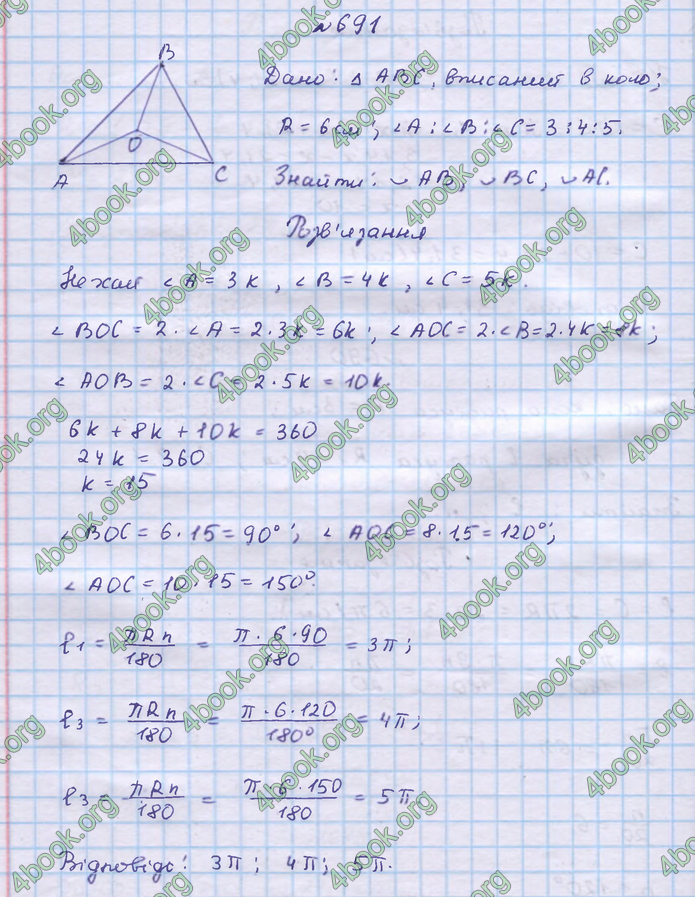 №691
B
O
A
C
Дано: △ ABC, вписаний в коло;
R = 6 см, ∠A : ∠B : ∠C = 3 : 4 : 5.
Знайти: ◡ AB, ◡ BC, ◡ AC.
Розв'язання
Нехай ∠A = 3k, ∠B = 4k, ∠C = 5k.
∠BOC = 2·∠A = 2·3k = 6k; ∠AOC = 2·∠B = 2·4k = 8k;
∠AOB = 2·∠C = 2·5k = 10k.
6k + 8k + 10k = 360
24k = 360
k = 15
∠BOC = 6·15 = 90°; ∠AOC = 8·15 = 120°;
∠AOC = 10·15 = 150°.
ℓ1 = πRn/180 = π·6·90/180 = 3π;
ℓ3 = πRn/180 = π·6·120/180° = 4π;
ℓ3 = πRn/180 = π·6·150/180 = 5π
Відповідь: 3π; 4π; 5π.
4book.org